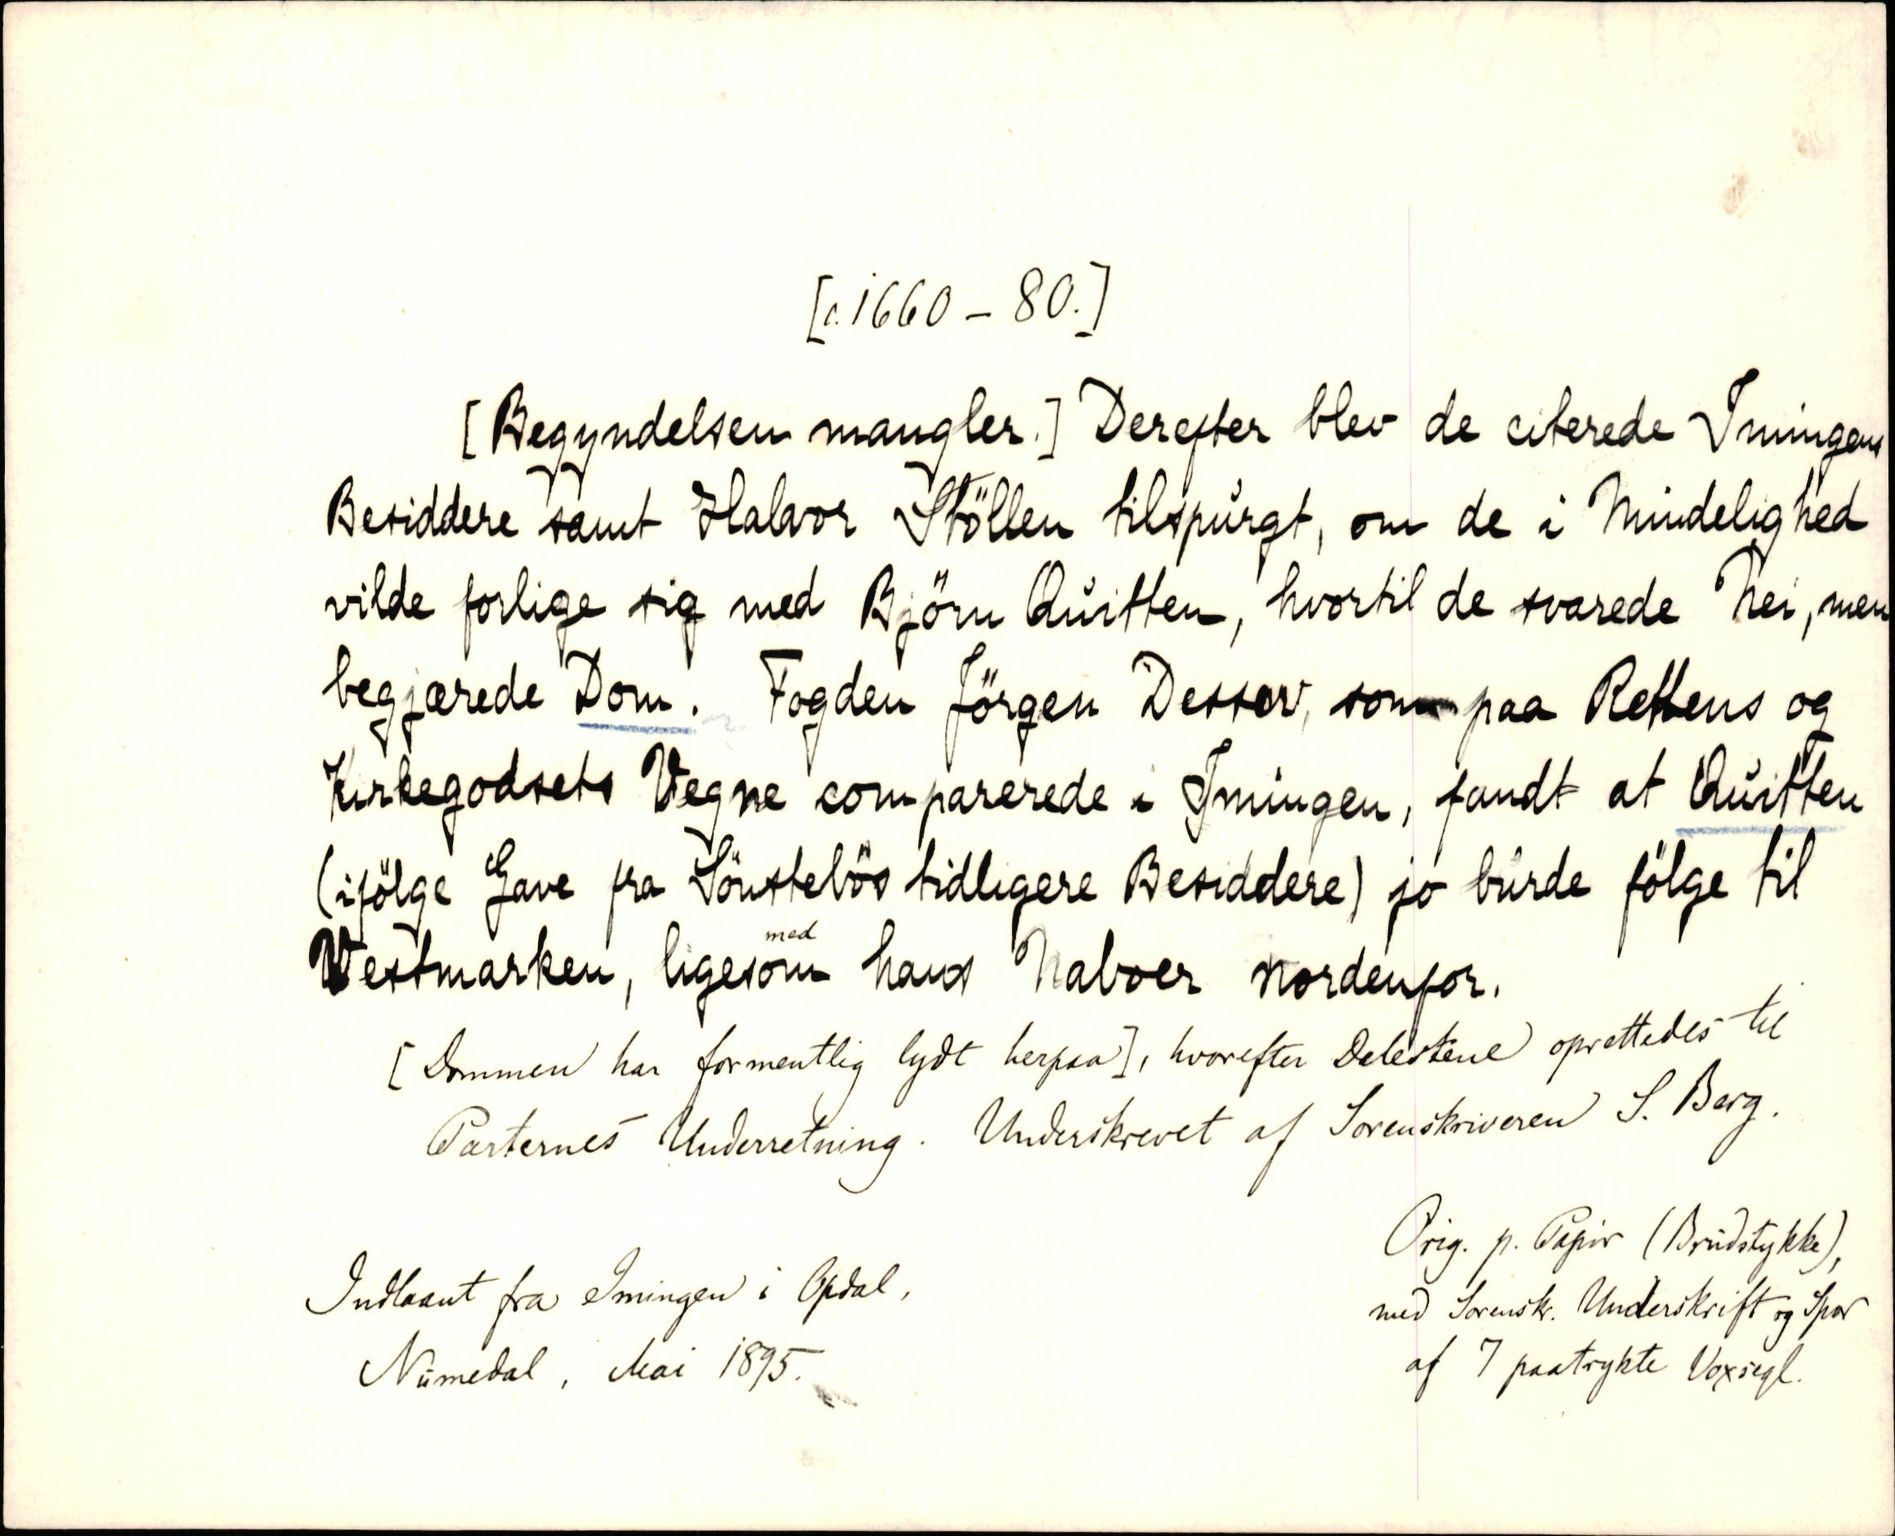 [c. 1660 – 80.]
[Begyndelsen mangler.] Derefter blev de citerede Imingens
Besiddere samt Halvor Stöllen tilspurgt, om de i Mindelighed
vilde forlige sig med Björn Quitten, hvortil de svarede Nei, men
begjærede Dom. Fogden Jörgen Desser, som paa Rettens og
Kirkegodsets Vegne comparerede i Imingen, fandt at Quitten
(ifölge Gave fra Sönstebös tidligere Besiddere) jo burde fölge til
Vestmarken, ligesom med hans Naboer nordenfor.
[Dommen har formentlig lydt herpaa], hvorefter Delestene oprettedes til
Parternes Underretning. Underskrevet af Sorenskriveren S. Berg.
Orig. p. Papir (Brudstykke),
med Sorenskr. Underskrift og Spor
af 7 paatrykte Voxsegl.
Indlaant fra Imingen i Opdal,
Numedal, Mai 1895.